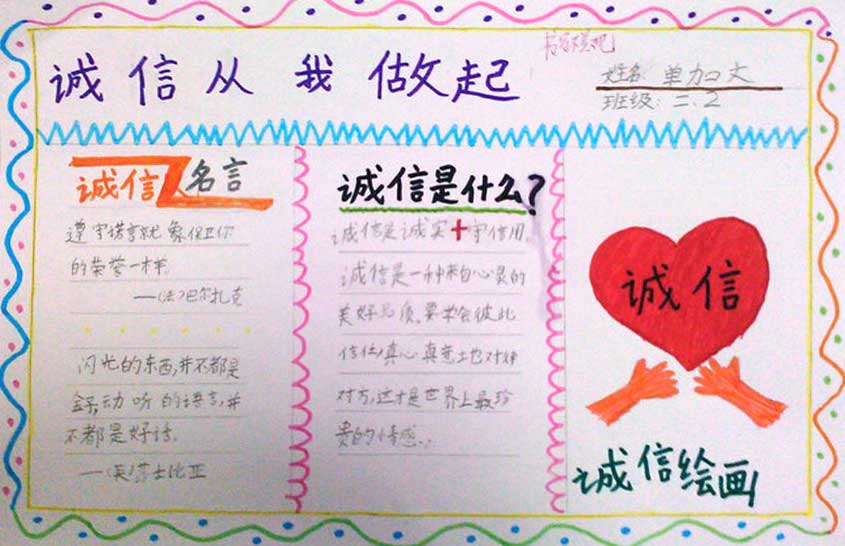 诚信从我做起
姓名：单加文
班级：二、2
诚信名言
遵守诺言就象保卫你
的荣誉一样。
——(法)巴尔扎克
闪光的东西,并不都是
金子,动听的语言,并
不都是好话。
——(英)莎士比亚
诚信是什么？
诚信是诚实+守信用。
诚信是一种来自心灵的
美好品质。要学会彼此
信任,真心真意地对待
对方,这才是世界上最珍
贵的情感。
诚信
诚信绘画